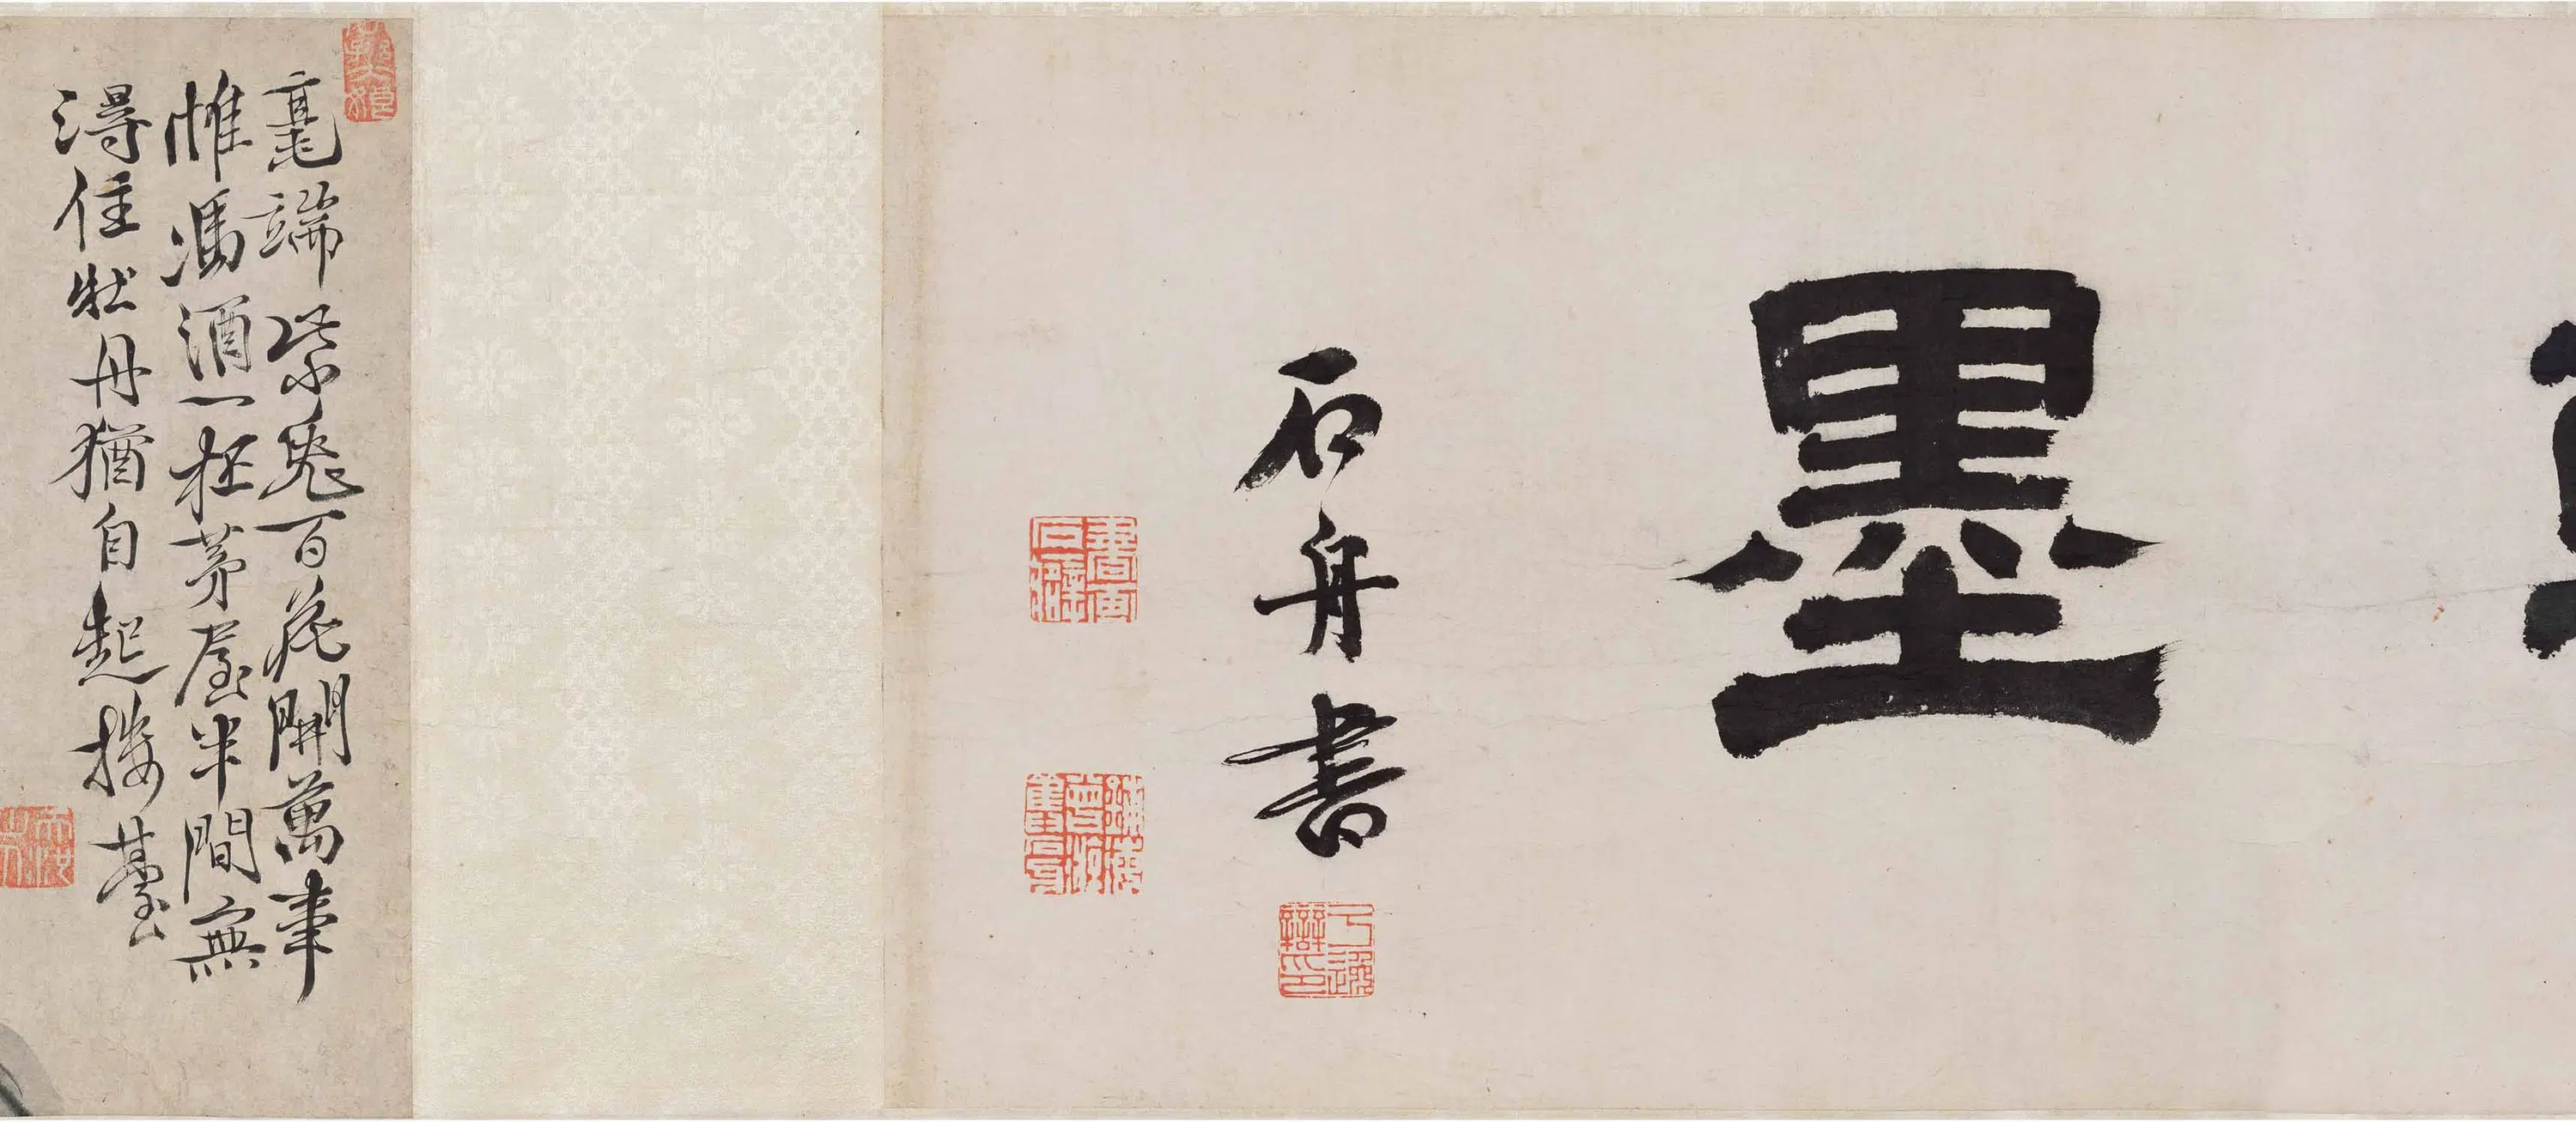 墨
石舟書
毫端紫兔百花開萬事
惟馮酒一杯茅屋半間無
得住牡丹猶自起樓臺